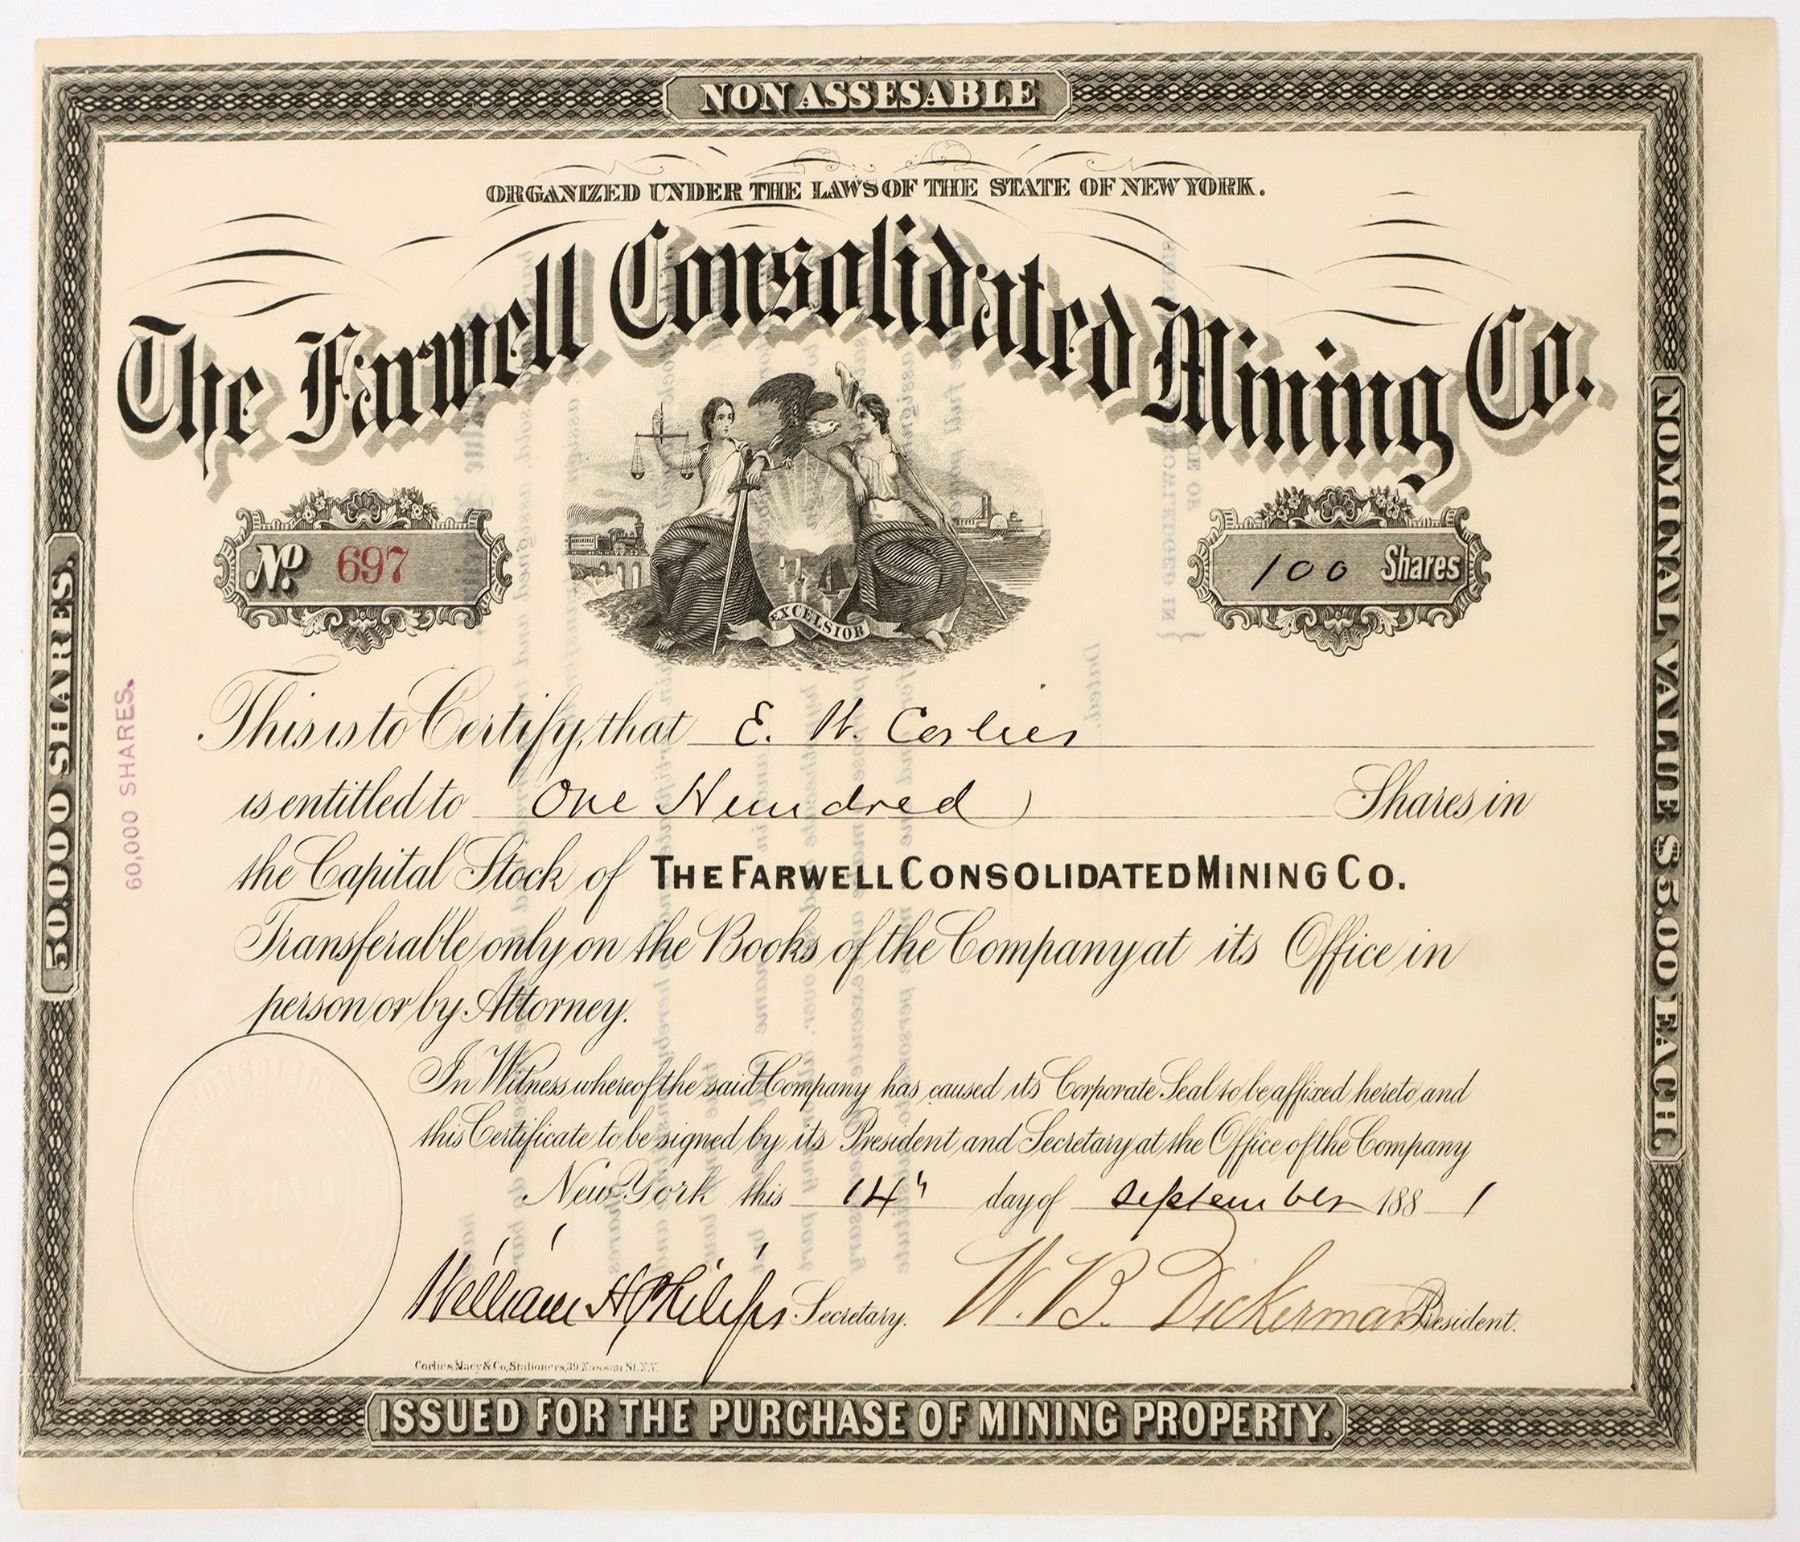 NON ASSESABLE
ORGANIZED UNDER THE LAWS OF THE STATE OF NEW YORK.
The Farwell Consolidated Mining Co.
No. 697
EXCELSIOR
100 Shares
50,000 SHARES.
60,000 SHARES.
NOMINAL VALUE $5.00 EACH.
This is to Certify, that E. W. Corlies
is entitled to One Hundred Shares in
the Capital Stock of THE FARWELL CONSOLIDATED MINING CO.
Transferable only on the Books of the Company at its Office in
person or by Attorney.
In Witness whereof the said Company has caused its Corporate Seal to be affixed hereto and
this Certificate to be signed by its President and Secretary at the Office of the Company
New York this 14th day of September 1881
William H Philips Secretary. W. B. Dickerman President.
Corlies, Macy & Co, Stationers, 39 Nassau St. N.Y.
ISSUED FOR THE PURCHASE OF MINING PROPERTY.